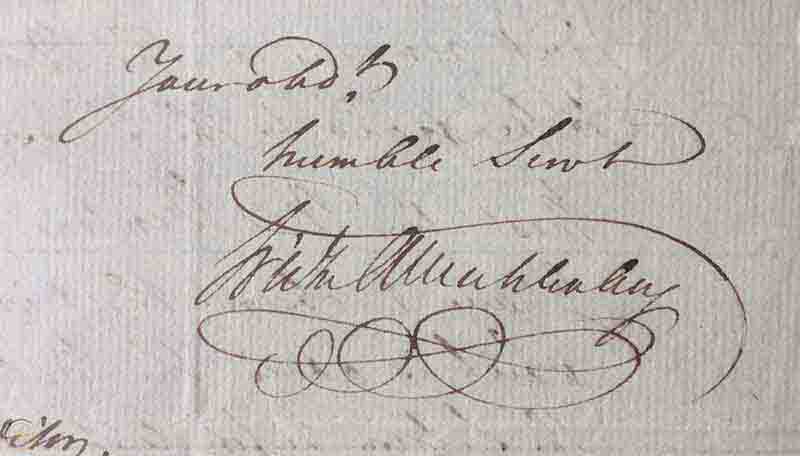 Your obdt
humble Servt
Fredk A Muhlenberg